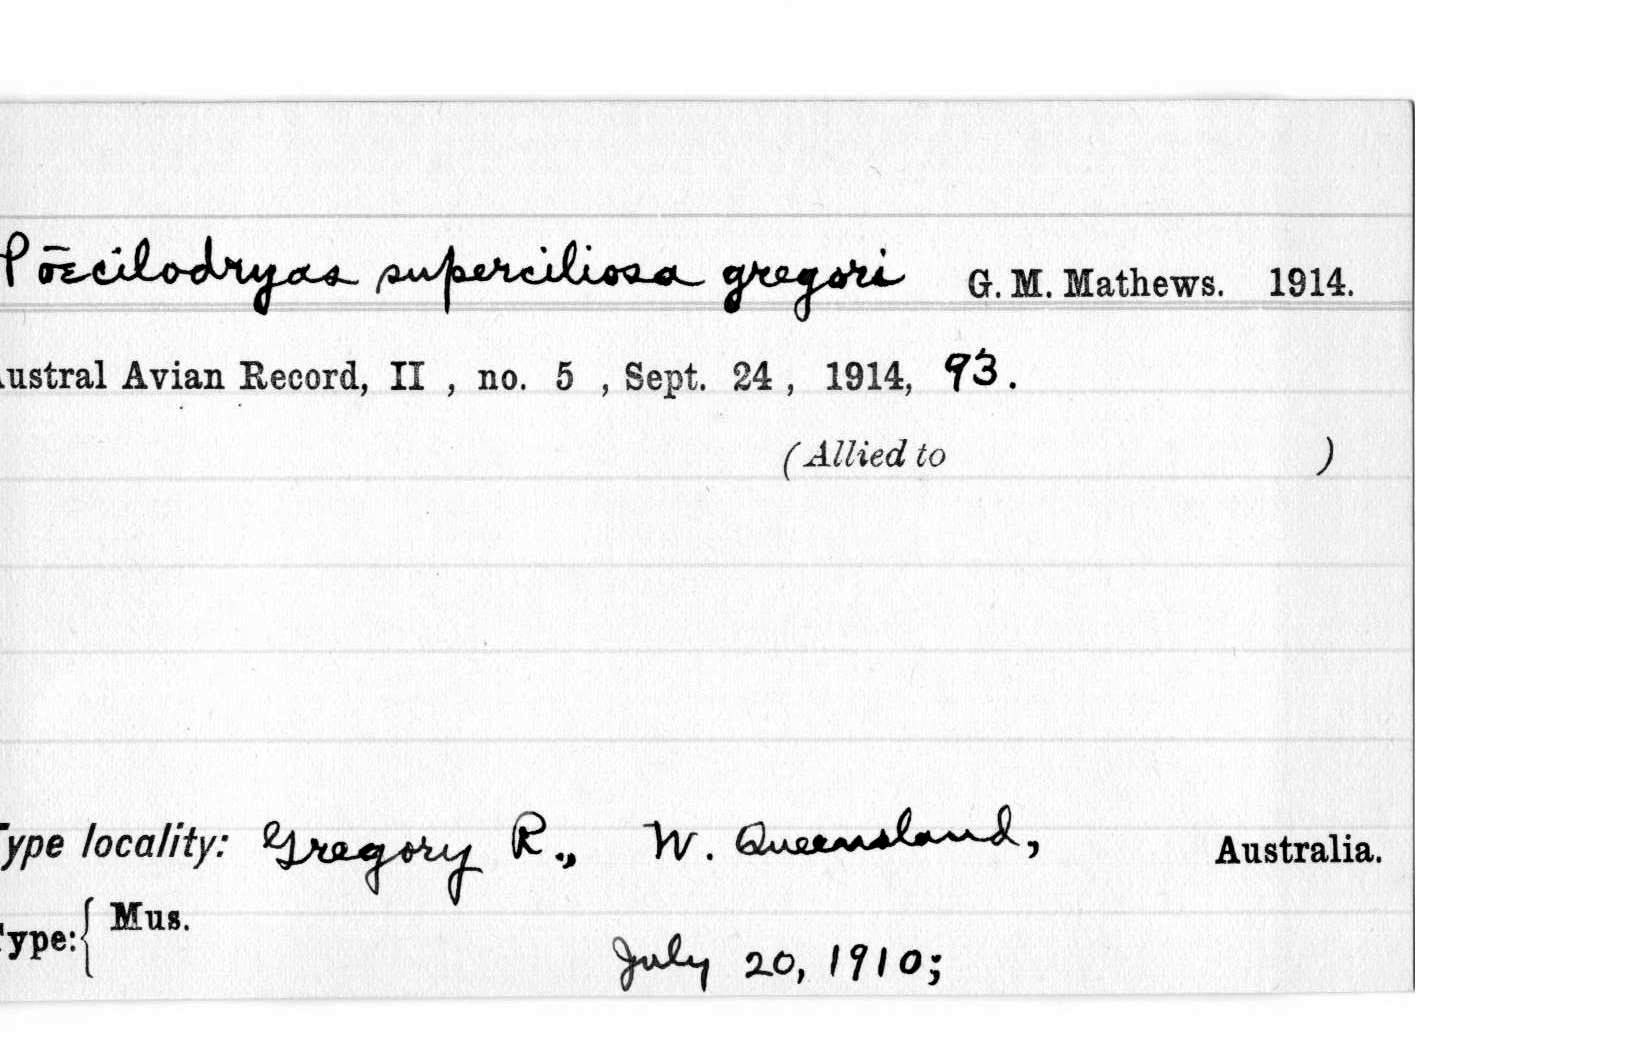 Pœcilodryas superciliosa gregori G. M. Mathews. 1914.
ustral Avian Record, II , no. 5 , Sept. 24 , 1914, 93.
(Allied to )
Type locality: Gregory R., W. Queensland, Australia.
Type: { Mus.
July 20, 1910;